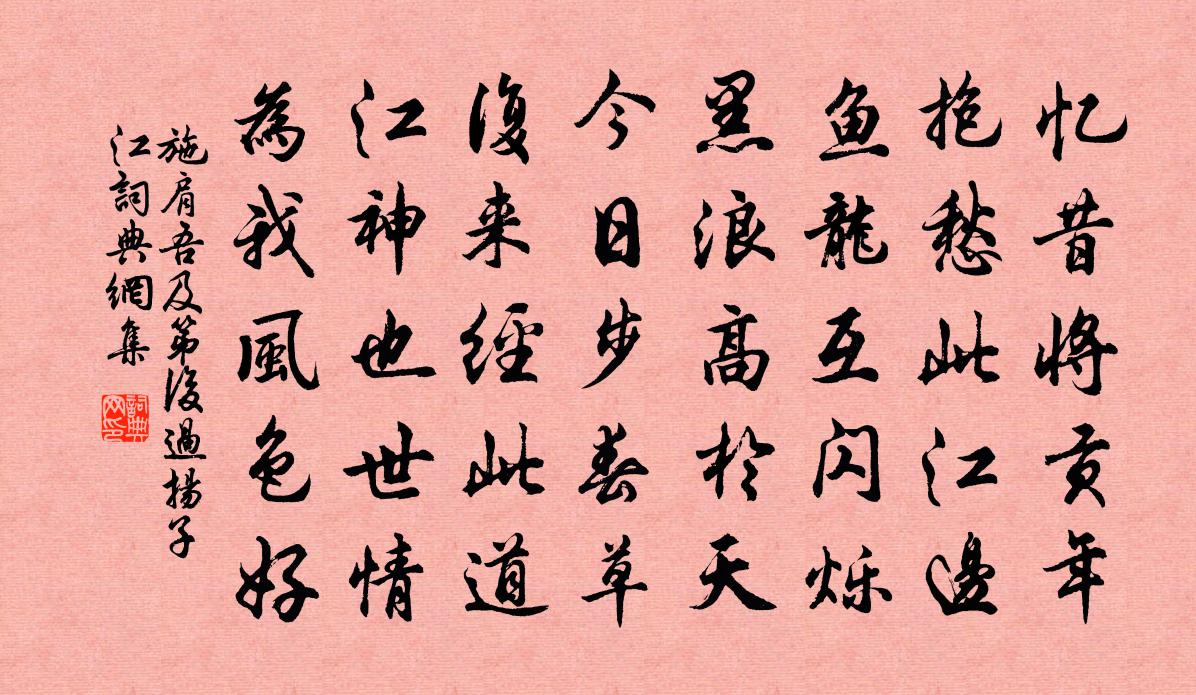 忆昔将贡年
抱愁此江邊
鱼龍互闪烁
黑浪高於天
今日步春草
復来經此道
江神也世情
為我風色好
施肩吾及第後過揚子
江詞典網集
詞典
网印